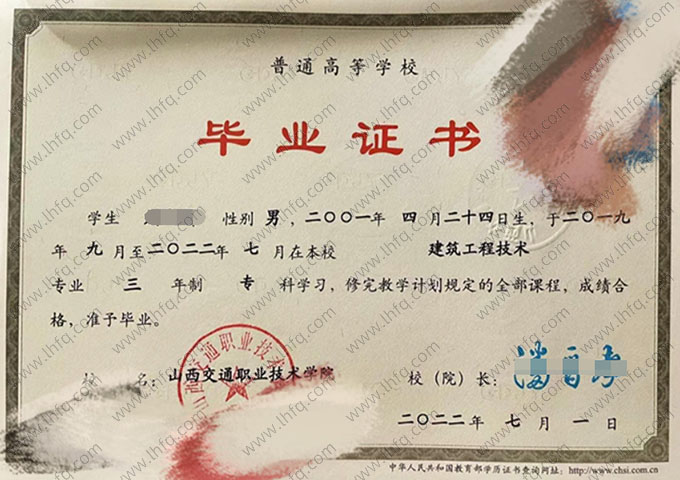 普通高等学校
毕业证书
学生 性别 男，二〇〇一年 四 月二十四日生，于二〇一九
年 九 月至二〇二二年 七 月在本校 建筑工程技术
专业 三 年制 专 科学习，修完教学计划规定的全部课程，成绩合
格，准予毕业。
校 名：山西交通职业技术学院 校（院）长：
二〇二二年 七 月 一 日
中华人民共和国教育部学历证书查询网址：http://www.chsi.com.cn
www.lhfq.com